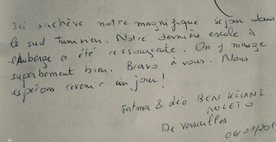 Ici s'achève notre magnifique séjour dans
le sud tunisien. Notre dernière escale à
l'Auberge a été ressourçante. On y mange
superbement bien. Bravo à vous. Nous
espérons revenir un jour !
Fatma & Léo BEN
De Versailles